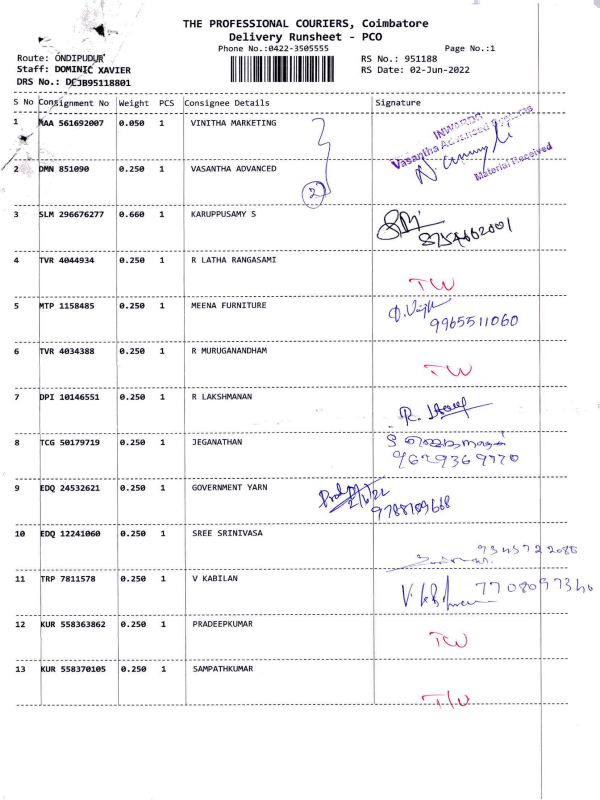 THE PROFESSIONAL COURIERS, Coimbatore
Delivery Runsheet - PCO
Phone No.:0422-3505555
Page No.:1
Route: ONDIPUDUR
RS No.: 951188
Staff: DOMINIC XAVIER
RS Date: 02-Jun-2022
DRS No.: DEJB95118801
S No Consignment No Weight PCS Consignee Details Signature
1 MAA 561692007 0.050 1 VINITHA MARKETING
INWARDS
Vasantha Advanced Systems
Material Received
2 DMN 851090 0.250 1 VASANTHA ADVANCED
2
3 SLM 296676277 0.660 1 KARUPPUSAMY S
4 TVR 4044934 0.250 1 R LATHA RANGASAMI
TW
5 MTP 1158485 0.250 1 MEENA FURNITURE
9965511060
6 TVR 4034388 0.250 1 R MURUGANANDHAM
TW
7 DPI 10146551 0.250 1 R LAKSHMANAN
8 TCG 50179719 0.250 1 JEGANATHAN
9629369770
9 EDQ 24532621 0.250 1 GOVERNMENT YARN
2/6/22
9788709668
10 EDQ 12241060 0.250 1 SREE SRINIVASA
11 TRP 7811578 0.250 1 V KABILAN
12 KUR 558363862 0.250 1 PRADEEPKUMAR
TW
13 KUR 558370105 0.250 1 SAMPATHKUMAR
T/W